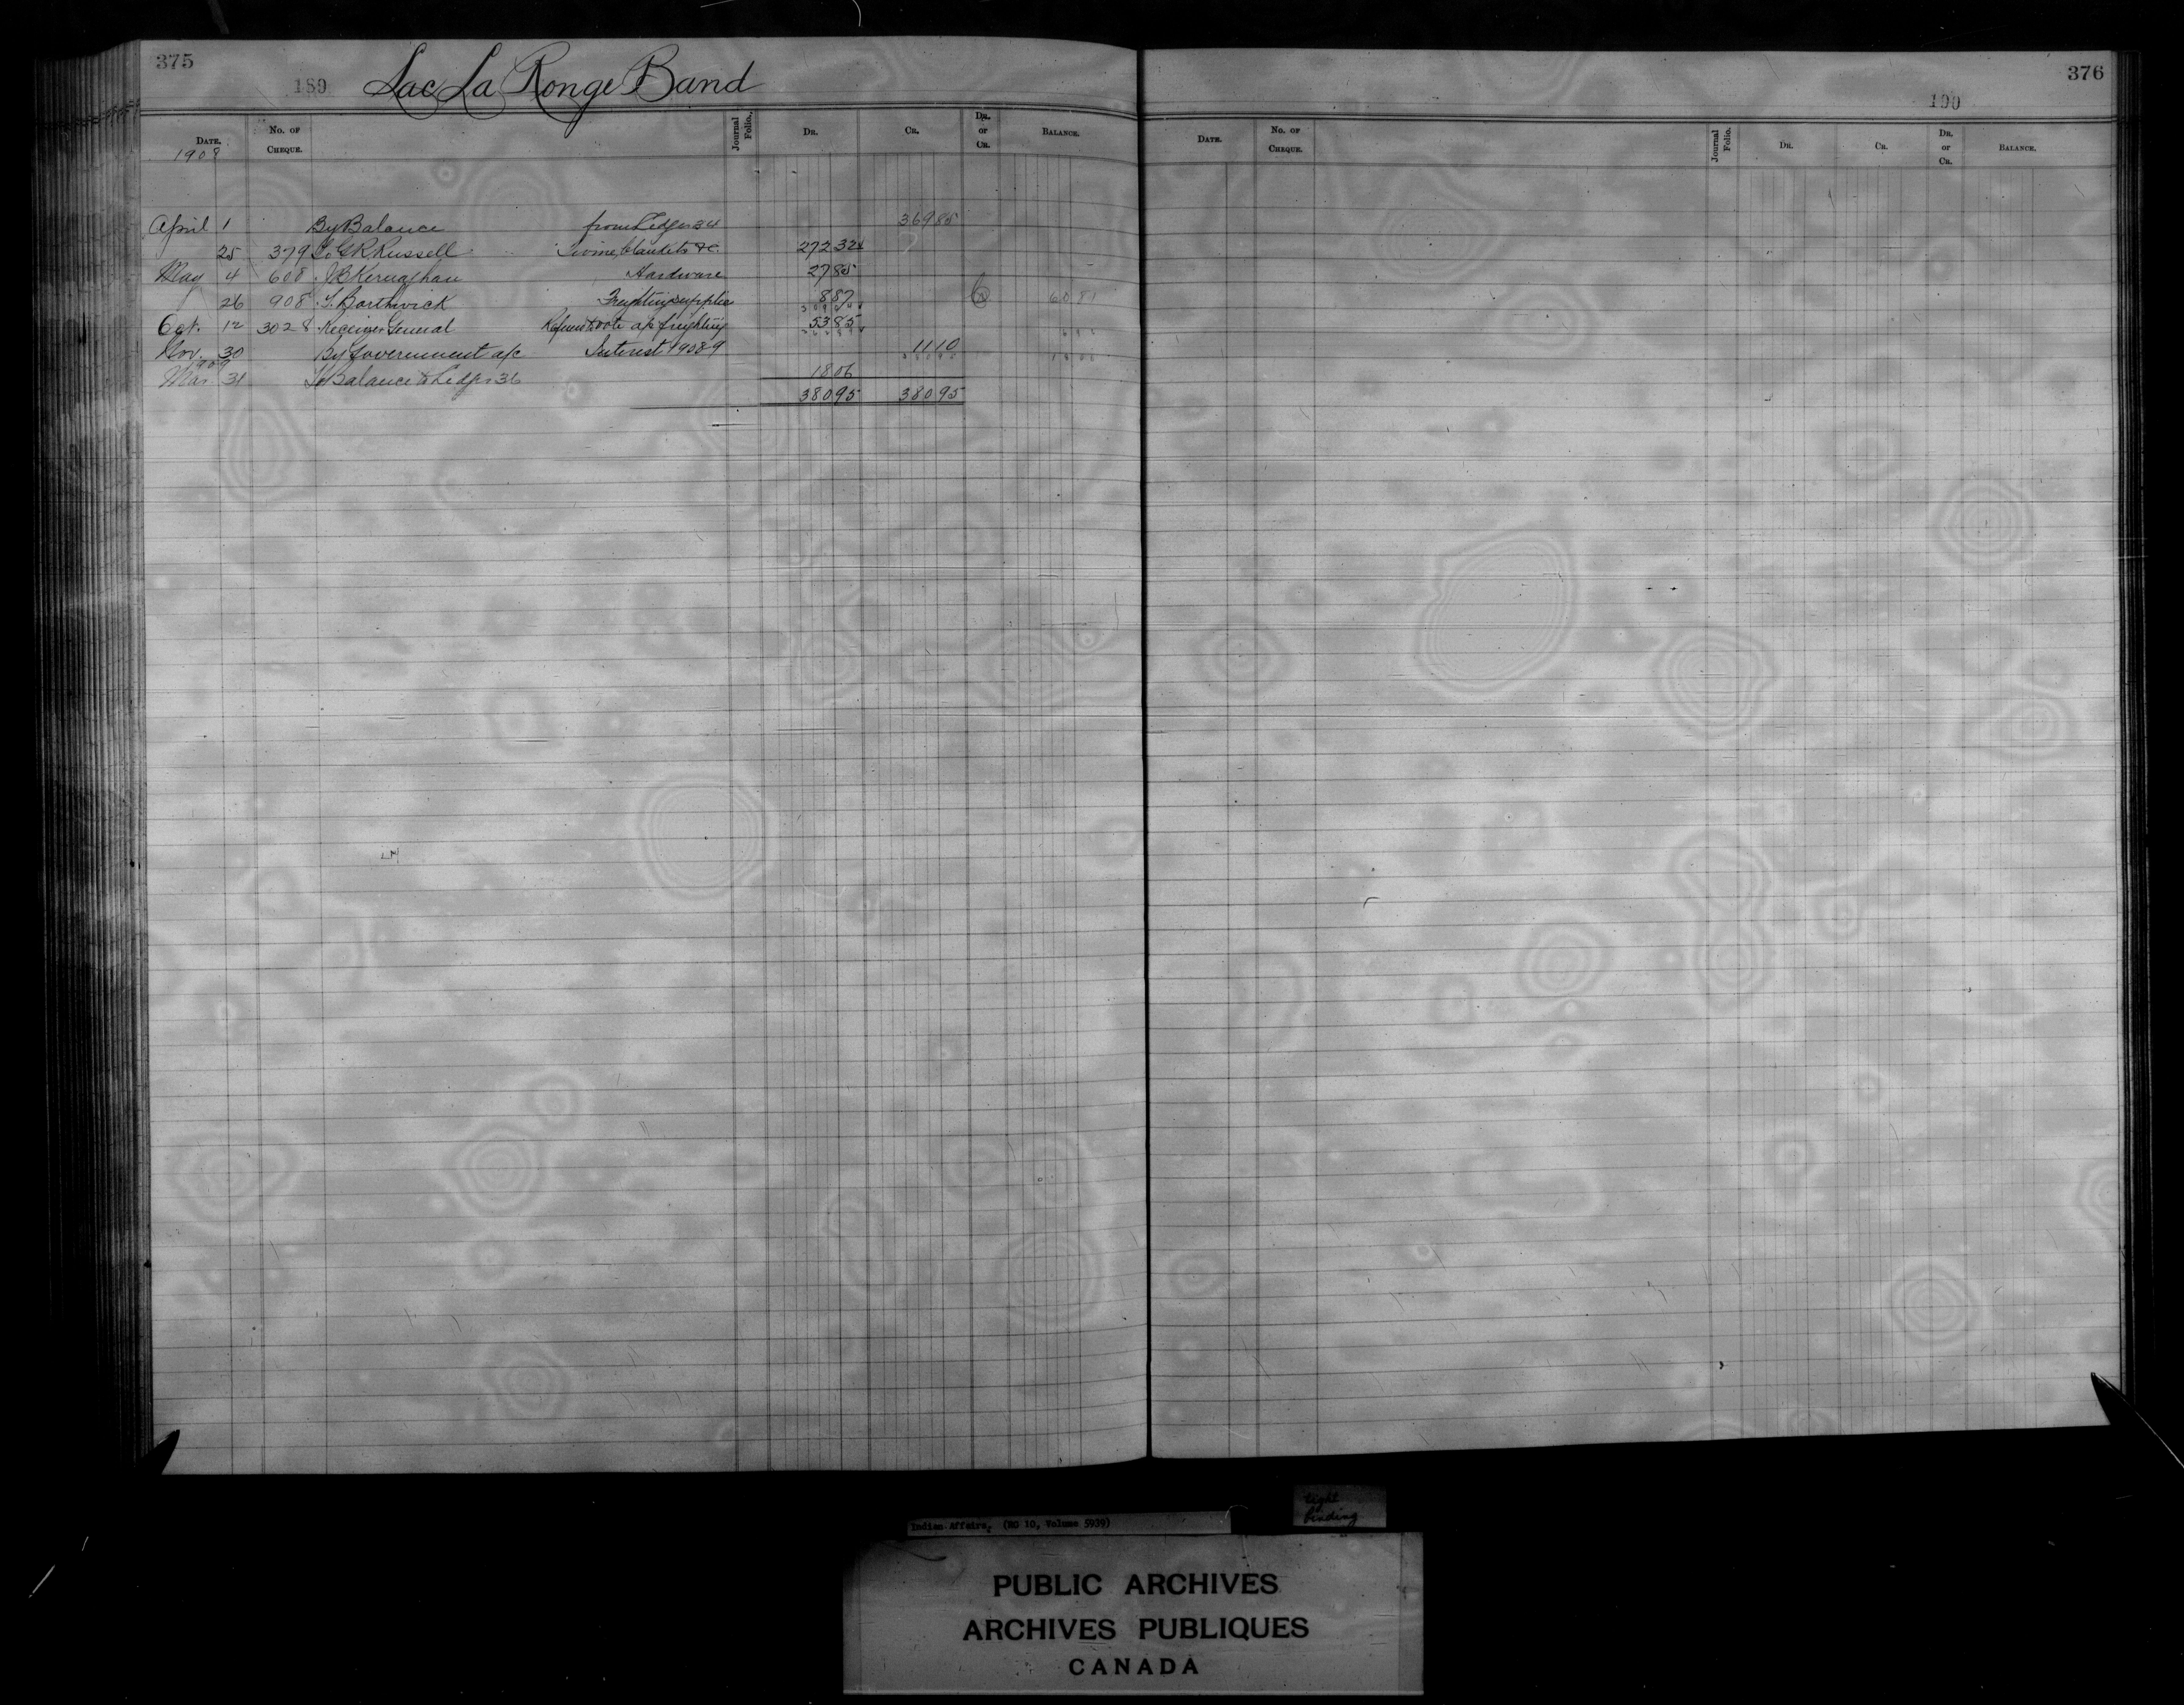 375
189 Lac La Ronge Band
Date. No. of Cheque. Journal Folio. Dr. Cr. Dr. or Cr. Balance.
1908
April 1 By Balance from Ledger 34 369 85
25 379 To G R Russell Twine, blankets &c. 272 32
May 4 608 " Kernaghan Hardware 27 85
26 908 " T. Borthwick Freighting supplies 8 87
Oct. 12 3028 " Receiver General Refund vote a/c freighting 53 85
Nov. 30 By Government a/c Interest 1908-9 11 10
1909
Mar 31 To Balance to Ledger 36 18 06
380 95 380 95
376
190
Date. No. of Cheque. Journal Folio. Dr. Cr. Dr. or Cr. Balance.
Indian Affairs. (RG 10, Volume 5939)
tight binding
PUBLIC ARCHIVES
ARCHIVES PUBLIQUES
CANADA